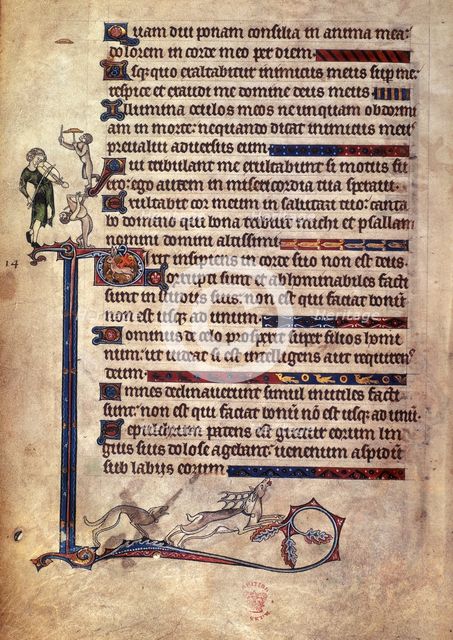 Quam diu ponam consilia in anima mea:
dolorem in corde meo per diem.
Usq; quo exaltabitur inimicus meus sup me:
respice et exaudi me domine deus meus.
Illumina oculos meos ne unquam obdormi
am in morte: nequando dicat inimicus meus
prevalui adversus eum.
Qui tribulant me exultabunt si motus fu
ero: ego autem in misericordia tua speravi.
Exultabit cor meum in salutari tuo: canta
bo domino qui bona tribuit michi et psallam
nomini domini altissimi
14
Dixit insipiens in corde suo non est deus.
Corrupti sunt et abhominabiles facti
sunt in studiis suis: non est qui faciat bonū
non est usq; ad unum.
Dominus de celo prospexit super filios homi
num: ut videat si est intelligens aut requirens
deum.
Omnes declinaverunt simul inutiles facti
sunt: non est qui faciat bonū nō est usq; ad unū.
Sepulchrum patens est guttur eorum lin
guis suis dolose agebant: venenum aspidū
sub labiis eorum.
Heritage